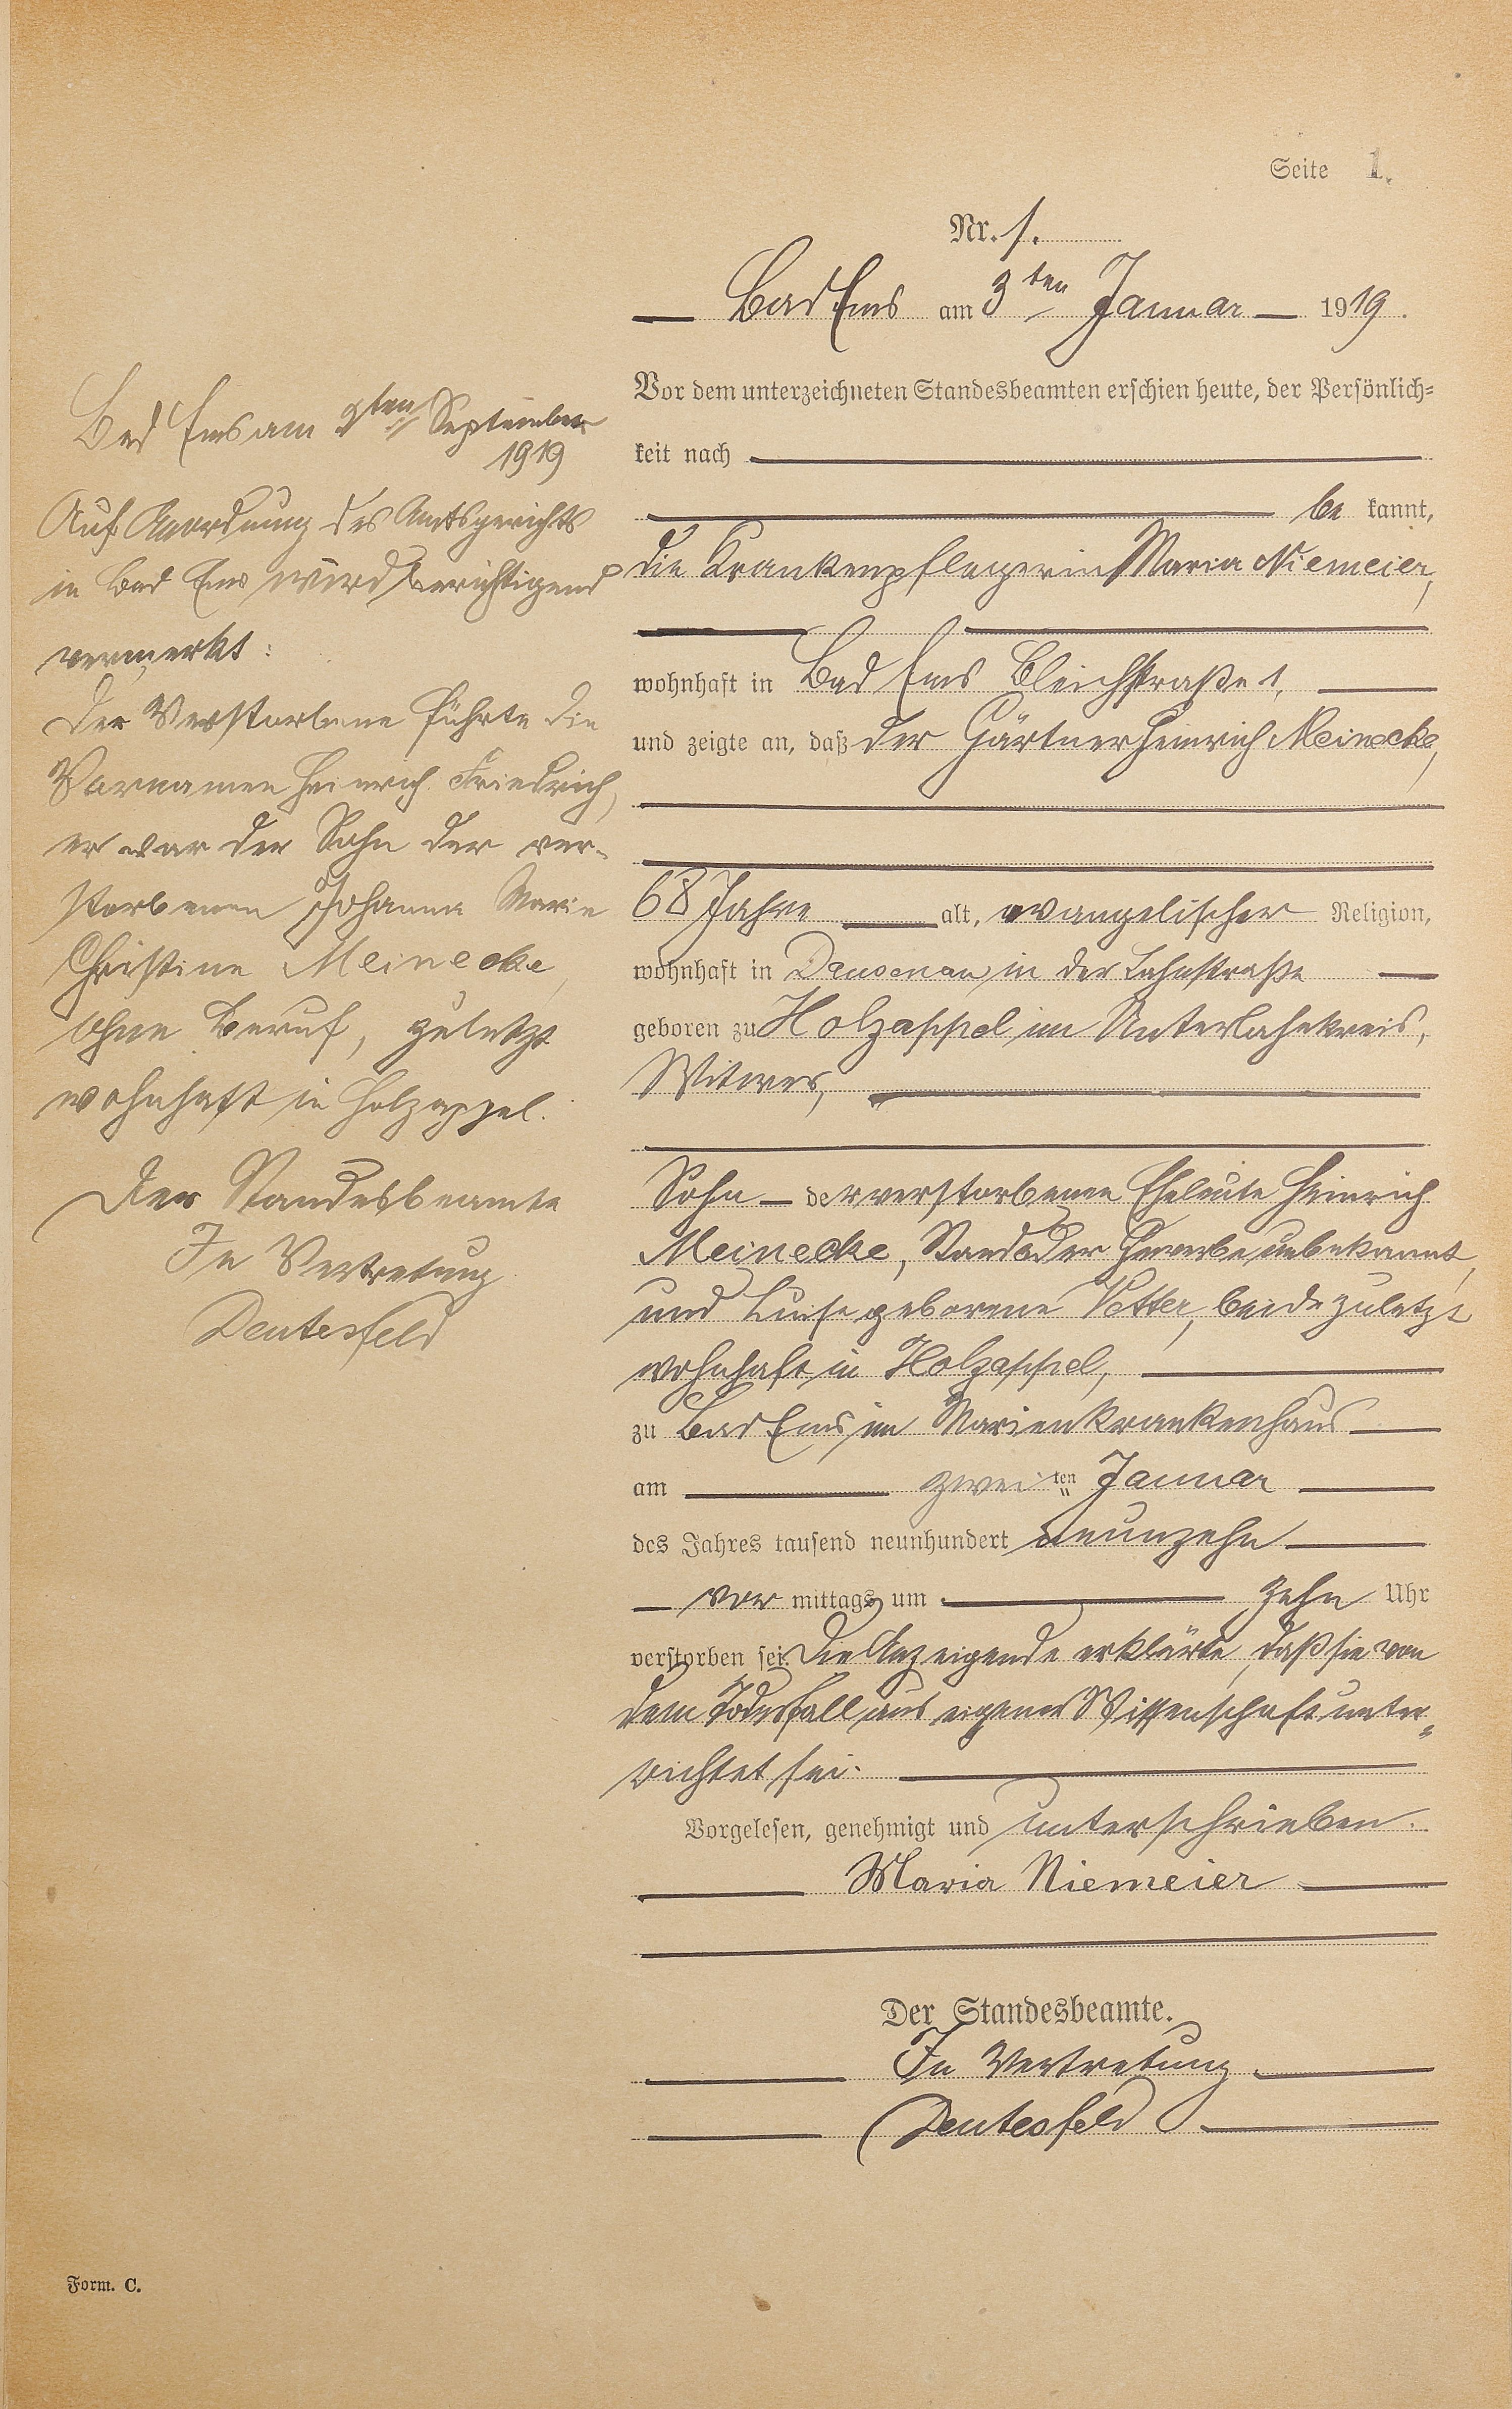 Seite 1.
Nr. 1.
Bad Ems am 3ten Januar 1919.
Vor dem unterzeichneten Standesbeamten erschien heute, der Persönlich=
keit nach
be kannt,
die Krankenpflegerin Maria Niemeier,
wohnhaft in Bad Ems Bleichstraße 1,
und zeigte an, daß der Gärtner Heinrich Meinecke,
68 Jahre alt, evangelischer Religion,
wohnhaft in Dausenau in der Lahnstraße
geboren zu Holzappel im Unterlahnkreis,
Witwer,
Sohn der verstorbenen Eheleute Heinrich
Meinecke, Stand oder Gewerbe unbekannt,
und Luise geborene Vetter, beide zuletzt
wohnhaft in Holzappel,
zu Bad Ems im Marienkrankenhaus
am zweiten Januar
des Jahres tausend neunhundert neunzehn
vor mittags um zehn Uhr
verstorben sei. Die Anzeigende erklärte, daß sie von
dem Todesfall aus eigener Wissenschaft unter=
richtet sei.
Vorgelesen, genehmigt und unterschrieben.
Maria Niemeier
Der Standesbeamte.
In Vertretung
Deutesfeld
Bad Ems am 9ten September
1919
Auf Anordnung des Amtsgerichts
in Bad Ems wird berichtigend
vermerkt:
Der Verstorbene führte die
Vornamen Heinrich Friedrich,
er war der Sohn der ver-
storbenen Johanna Marie
Christine Meinecke,
ohne Beruf, zuletzt
wohnhaft in Holzappel.
Der Standesbeamte
In Vertretung
Deutesfeld
Form. C.